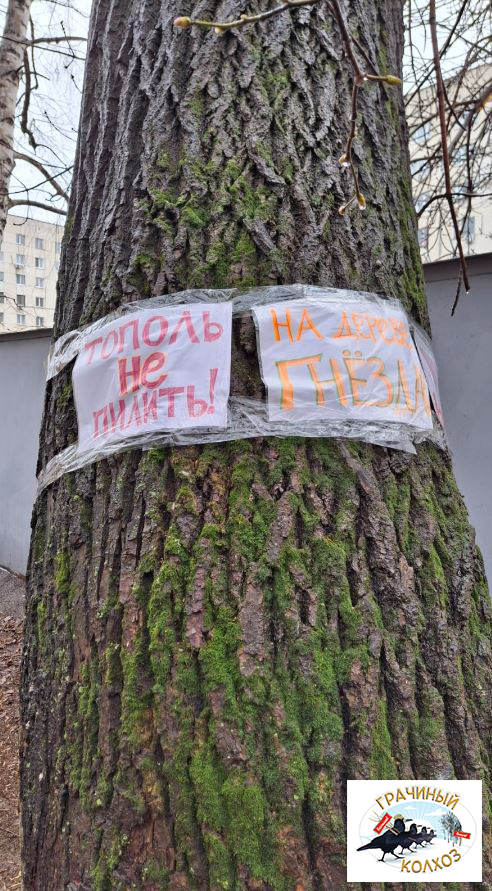 ТОПОЛЬ
НЕ
ПИЛИТЬ!
НА ДЕРЕВЕ
ГНЁЗДА
ГРАЧИНЫЙ
КОЛХОЗ